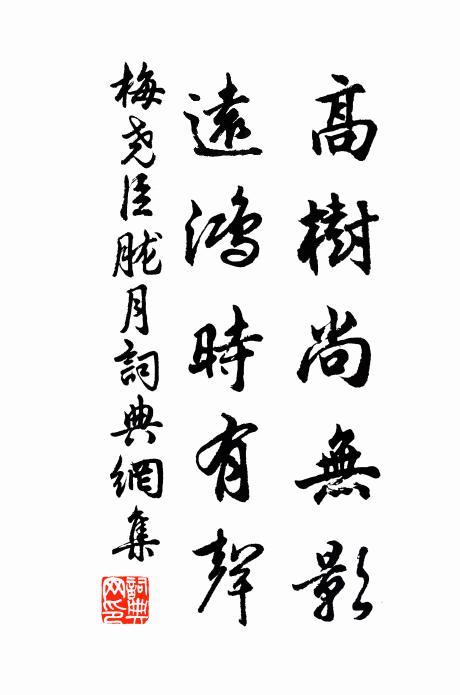 高樹尚無影
遠鴻時有聲
梅尧臣胧月詞典網集
詞典網印